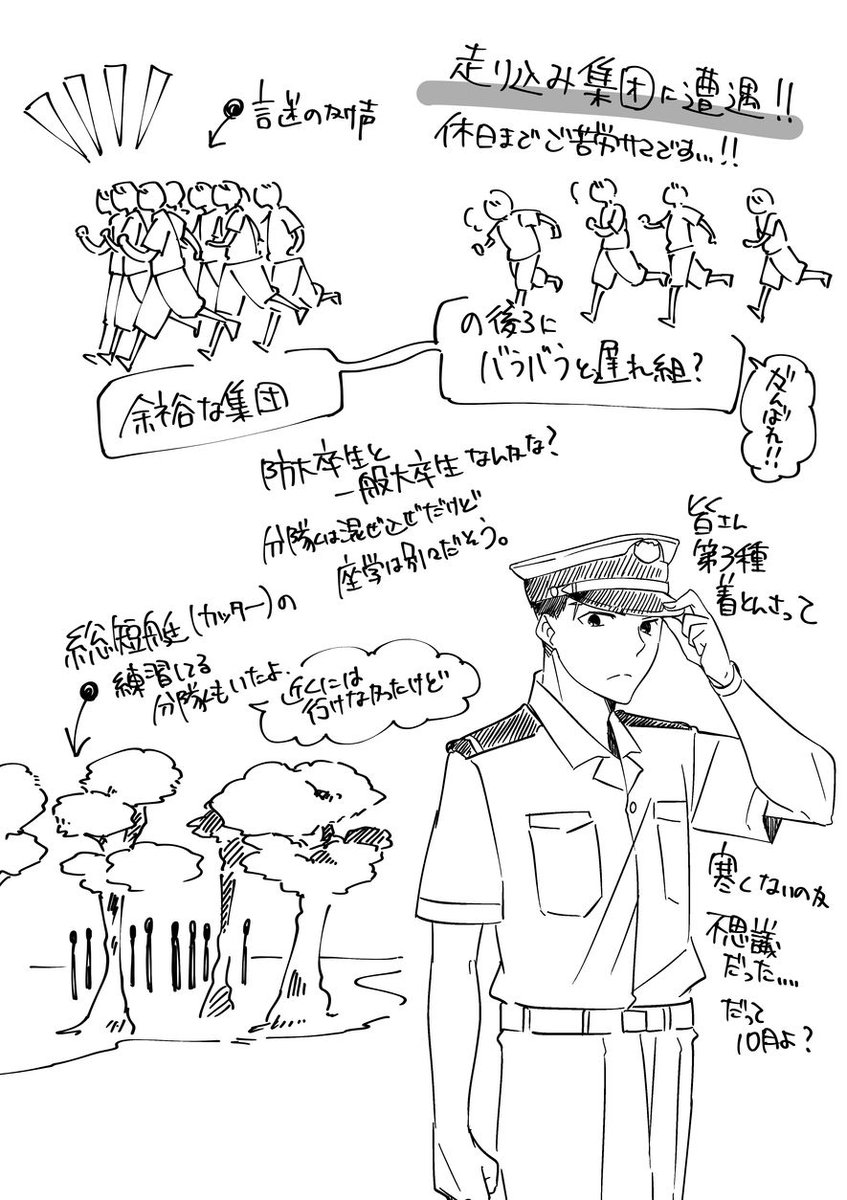 走り込み集団に遭遇!!
休日までご苦労サマです…!!
謎の掛け声
余裕な集団
の後ろに
バラバラと遅れ組?
がんばれ!!
防大卒生と
一般大卒生なんかな?
分隊は混ぜ込ぜだけど
座学は別々だそう。
皆さん
第3種
着とんさって
総短艇(カッター)の
練習してる
分隊もいたよ.
近くには
行けなかったけど
寒くないのか
不思議
だった….
だって
10月よ?